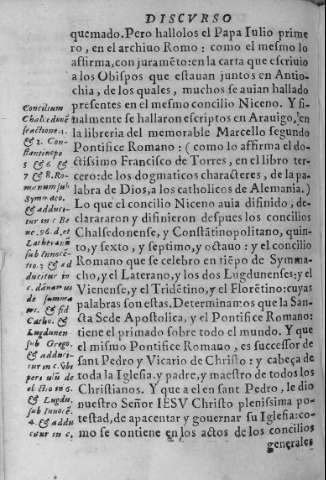 DISCVRSO
quemado. Pero hallolos el Papa Iulio prime
ro, en el archiuo Romo: como el mesmo lo
affirma, con juramẽto: en la carta que escriuio
a los Obispos que estauan juntos en Antio-
chia, de los quales, muchos se auian hallado
presentes en el mesmo concilio Niceno. Y fi-
nalmente se hallaron escriptos en Arauigo, en
la libreria del memorable Marcello segundo
Pontifice Romano: (como lo affirma el do-
ctissimo Francisco de Torres, en el libro ter-
cero: de los dogmaticos characteres, de la pa-
labra de Dios, a los catholicos de Alemania.)
Lo que el concilio Niceno auia difinido, de-
clararon y difinieron despues los concilios
Chalsedonense, y Constãtinopolitano, quin-
to, y sexto, y septimo, y octauo: y el concilio
Romano que se celebro en tiẽpo de Symma-
cho, y el Laterano, y los dos Lugdunenses: y el
Vienense, y el Tridẽtino, y el Florẽtino: cuyas
palabras son estas. Determinamos que la San-
cta Sede Apostolica, y el Pontifice Romano:
tiene el primado sobre todo el mundo. Y que
el mismo Pontifice Romano, es successor de
sant Pedro y Vicario de Christo: y cabeça de
toda la Iglesia, y padre, y maestro de todos los
Christianos. Y que a el en sant Pedro, le dio
nuestro Señor IESV Christo plenissima po-
testad, de apacentar y gouernar su Iglesia: co-
mo se contiene en los actos de los concilios
generales
Concilium
Chalsedonẽ
se actione 1.
& 2. Con
stantinopo
5 & 6 &
7 & 8. Ro-
manum sub
Symmaco.
& adduci-
tur in c. Be
ne. 96. d. et
Lateranũ
sub Innocẽ-
tio. 3 & ad
ducitur in
c. dãnamus
de summa
tri. & fid
Catho. &
Lugdunen
sub Grego.
& adduci-
tur in c. Vbi
peri
el. tio in 6.
& Lugdu.
sub Innocẽ.
4. & addu
citur in c.